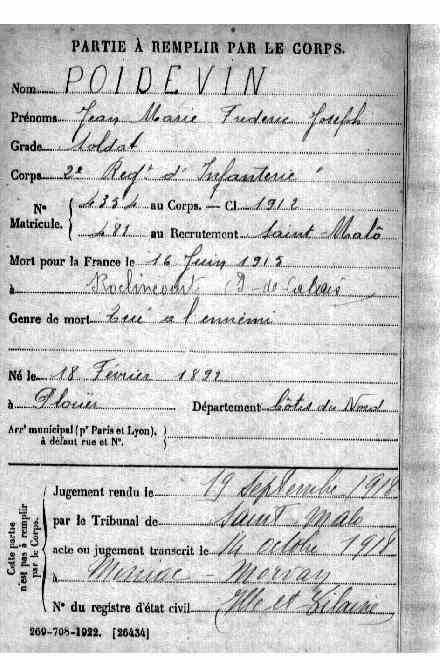 PARTIE À REMPLIR PAR LE CORPS.
Nom POIDEVIN
Prénoms Jean Marie Frederic Joseph
Grade soldat
Corps 2e Regt d'Infanterie
N° 4354 au Corps. — Cl. 1912
Matricule. 481 au Recrutement Saint-Malo
Mort pour la France le 16 Juin 1915
à Roclincourt P-de-Calais
Genre de mort tué à l'ennemi
Né le 18 Février 1892
à Plouër Département Côtes du Nord
Arrt municipal (pr Paris et Lyon),
à défaut rue et N°.
Cette partie
n'est pas à remplir
par le Corps.
Jugement rendu le 19 septembre 1918
par le Tribunal de Saint Malo
acte ou jugement transcrit le 14 octobre 1918
à Miniac - Morvan
N° du registre d'état civil Ille et Vilaine
269-708-1922. [26434]